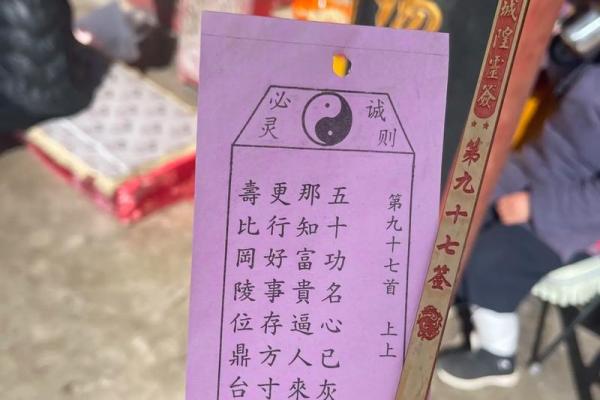 诚则
必灵
第九十七首 上上
五十功名心已灰
那知富貴逼人來
更行好事存方寸
壽比岡陵位鼎台
城隍靈簽
第九十七签